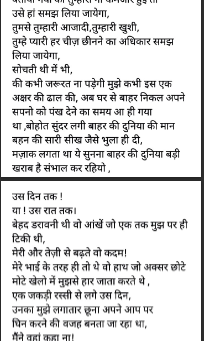 उसे हां समझ लिया जायेगा,
तुमसे तुम्हारी आजादी,तुम्हारी खुशी,
तुम्हे प्यारी हर चीज़ छीनने का अधिकार समझ
लिया जायेगा,
सोचती थी में भी,
की कभी जरूरत ना पड़ेगी मुझे कभी इस एक
अक्षर की ढाल की, अब घर से बाहर निकल अपने
सपनो को पंख देने का समय आ ही गया
था ,बोहोत सुंदर लगी बाहर की दुनिया की मान
बहन की सारी सीख जैसे भुला ही दी,
मज़ाक लगता था ये सुनना बाहर की दुनिया बड़ी
खराब है संभाल कर रहियो ,
उस दिन तक !
या ! उस रात तक।
बेहद डरावनी थी वो आंखें जो एक तक मुझ पर ही
टिकी थी,
मेरी और तेज़ी से बढ़ते वो कदम!
मेरे भाई के तरह ही तो थे वो हाथ जो अक्सर छोटे
मोटे खेलो में मुझसे हार जाया करते थे ,
एक जकड़ी रस्सी से लगे उस दिन,
उनका मुझे लगातार छूना अपने आप पर
घिन करने की वजह बनता जा रहा था,
मैंने वहां कहा ना!